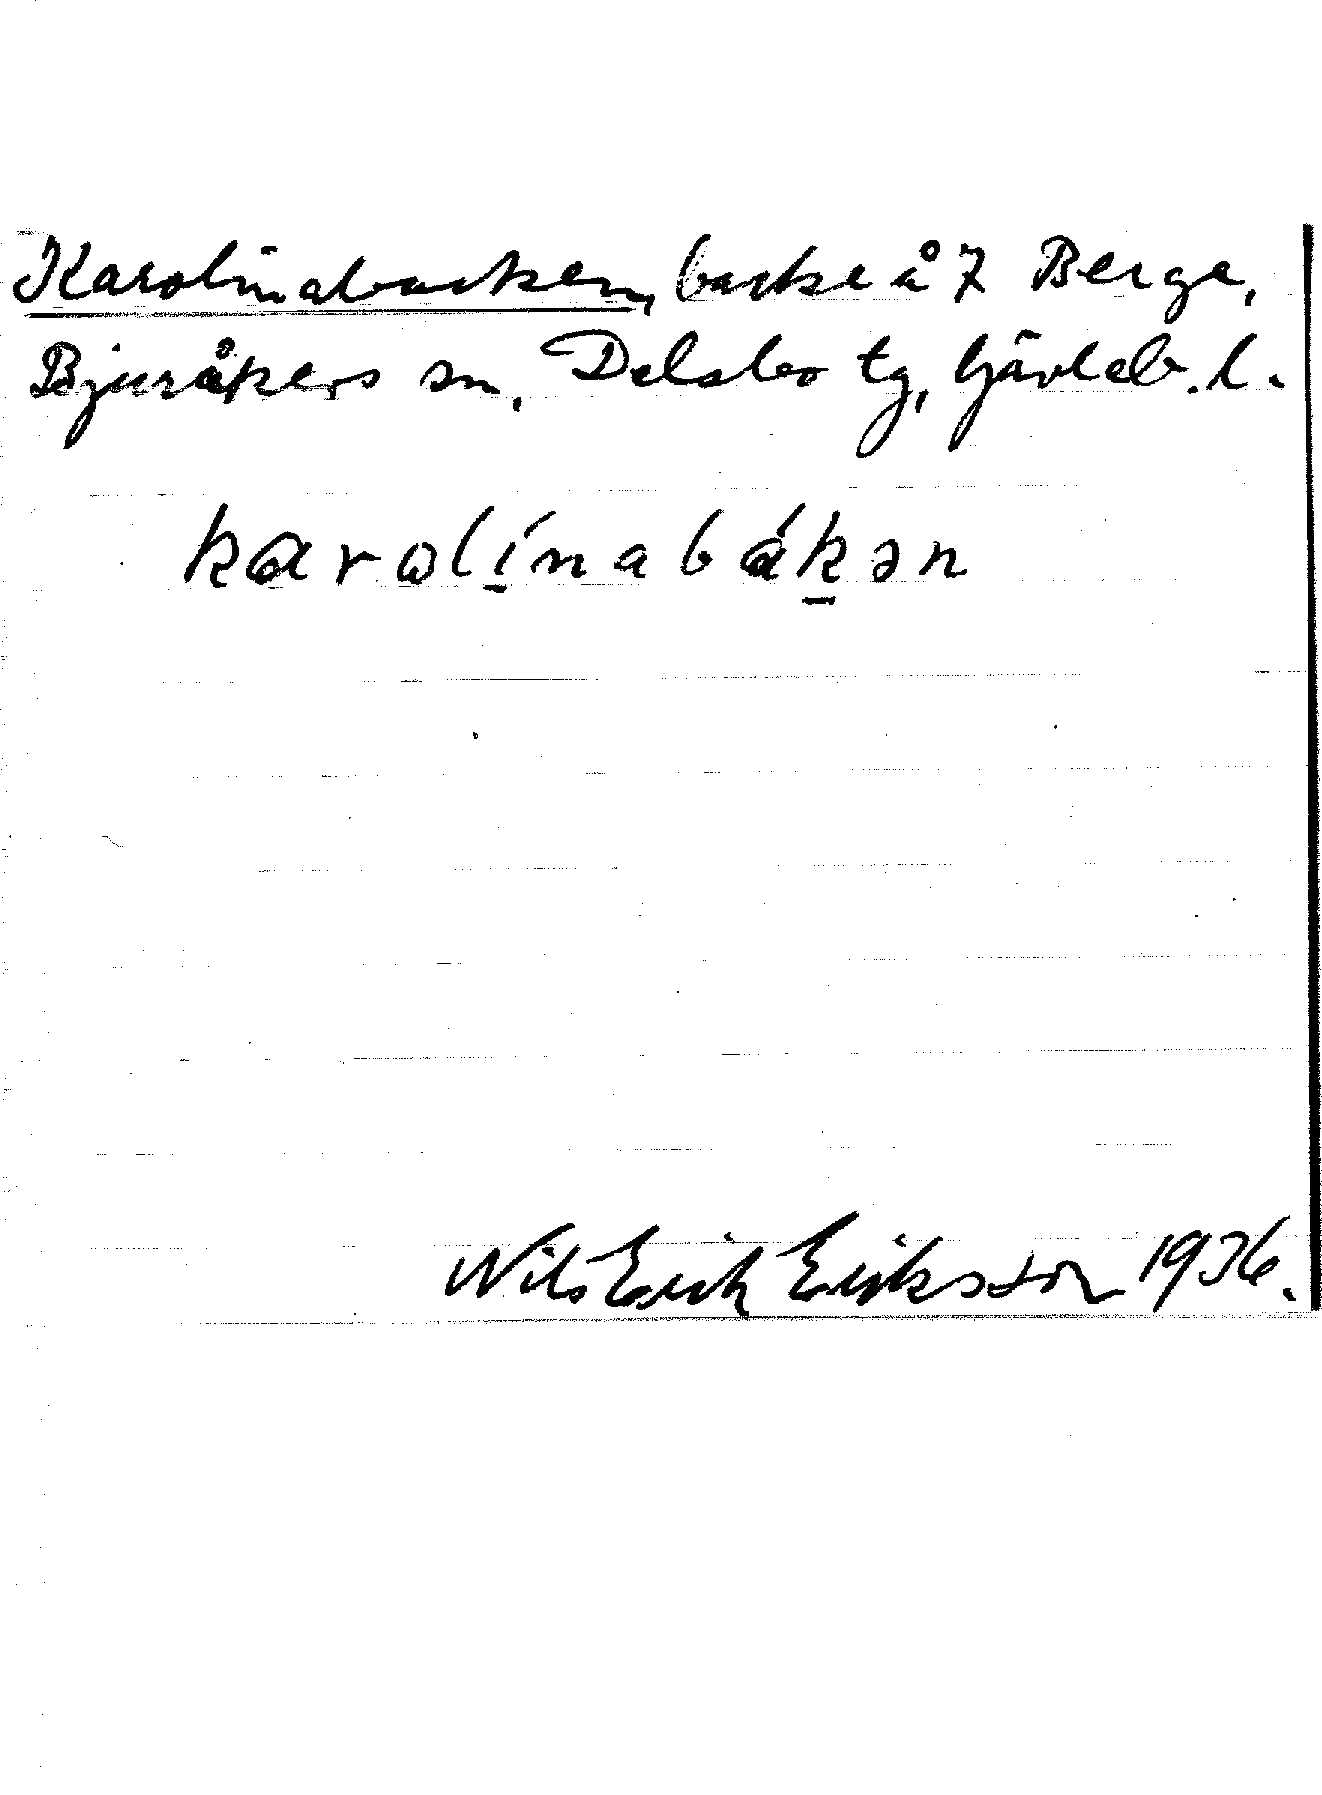 Karolinabacken, backe å 7 Berge,
Bjuråkers sn, Delsbo tg, Gävleb. l.
karolínabákən
Nils Erik Eriksson 1936.